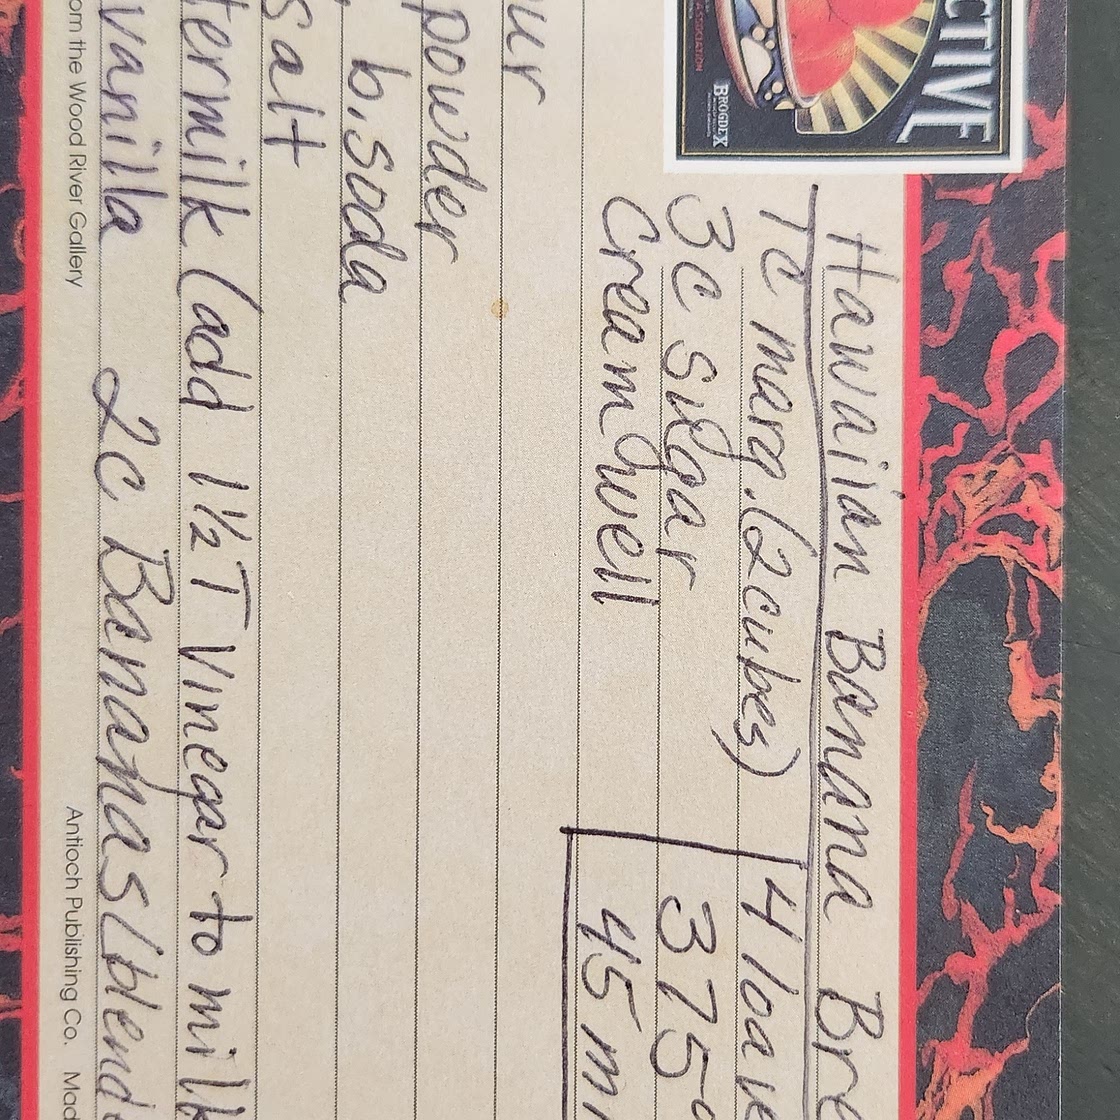 CTIVE
BROGDEX
Hawaiian Banana Bre
1c marg. (2cubes) 4 loave
3c sugar 375°
Cream Well 45 mi
ur
powder
b. soda
salt
termilk (add 1½ T Vinegar to milk
vanilla 2c Bananas (blend
om the Wood River Gallery Antioch Publishing Co. Mad